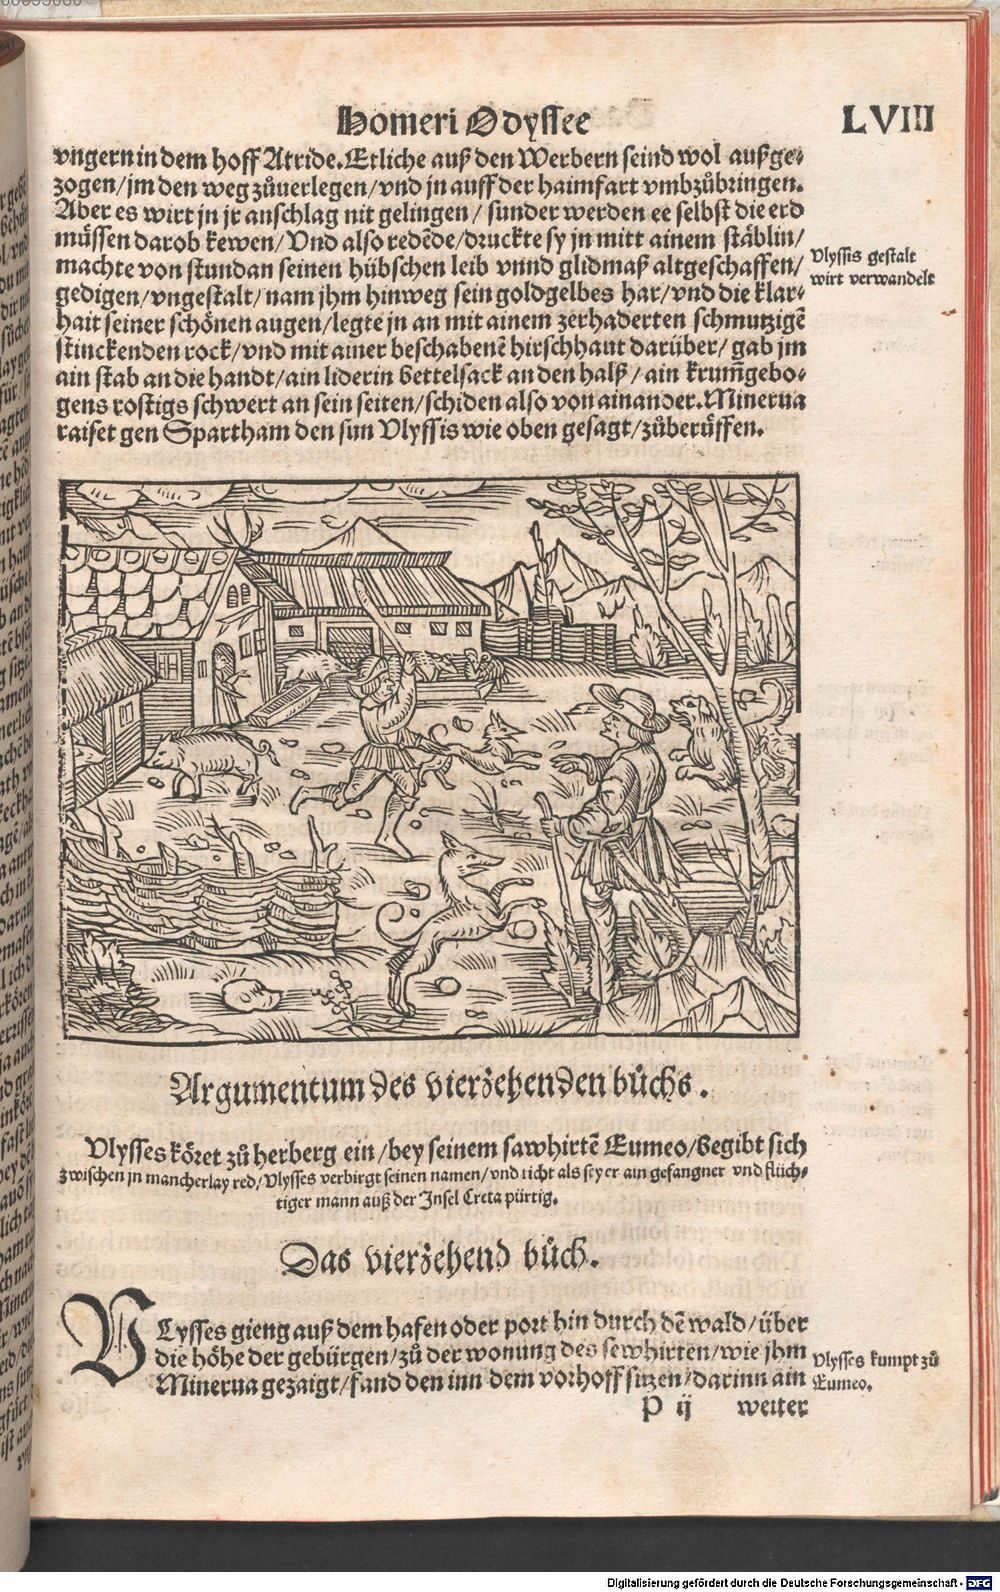 Homeri Odyssee
LVIII
vngern in dem hoff Atride. Etliche auß den Werbern seind wol außge⸗
zogen/jm den weg zůuerlegen/vnd jn auff der haimfart vmbzůbringen.
Aber es wirt jn jr anschlag nit gelingen/ sunder werden ee selbst die erd
müssen darob kewen/Vnd also redẽde/druckte sy jn mitt ainem stäblin/
machte von stundan seinen hübschen leib vnnd glidmaß altgeschaffen/
gedigen/vngestalt/nam jhm hinweg sein goldgelbes har/vnd die klar⸗
hait seiner schönen augen/legte jn an mit ainem zerhaderten schmutzigẽ
stinckenden rock/vnd mit ainer beschabenẽ hirschhaut darüber/ gab jm
ain stab an die handt/ain liderin bettelsack an den halß/ain krum̃gebo⸗
gens rostigs schwert an sein seiten/schiden also von ainander. Minerua
raiset gen Spartham den sun Vlyssis wie oben gesagt/zůberůffen.
Vlyssis gestalt
wirt verwandelt
Argumentum des vierzehenden bůchs.
Vlysses köret zů herberg ein/bey seinem sawhirtẽ Eumeo/begibt sich
zwischen jn mancherlay red/Vlysses verbirgt seinen namen/vnd ticht als sey er ain gefangner vnd flüch⸗
tiger mann auß der Insel Creta pürtig.
Das vierzehend bůch.
VLysses gieng auß dem hafen oder port hin durch dẽ wald/über
die höhe der gebürgen/zů der wonung des sewhirten/wie jhm
Minerua gezaigt/fand den inn dem vorhoff sitzen/darinn ain
Vlysses kumpt zů
Eumeo.
P ij weiter
Digitalisierung gefördert durch die Deutsche Forschungsgemeinschaft - DFG